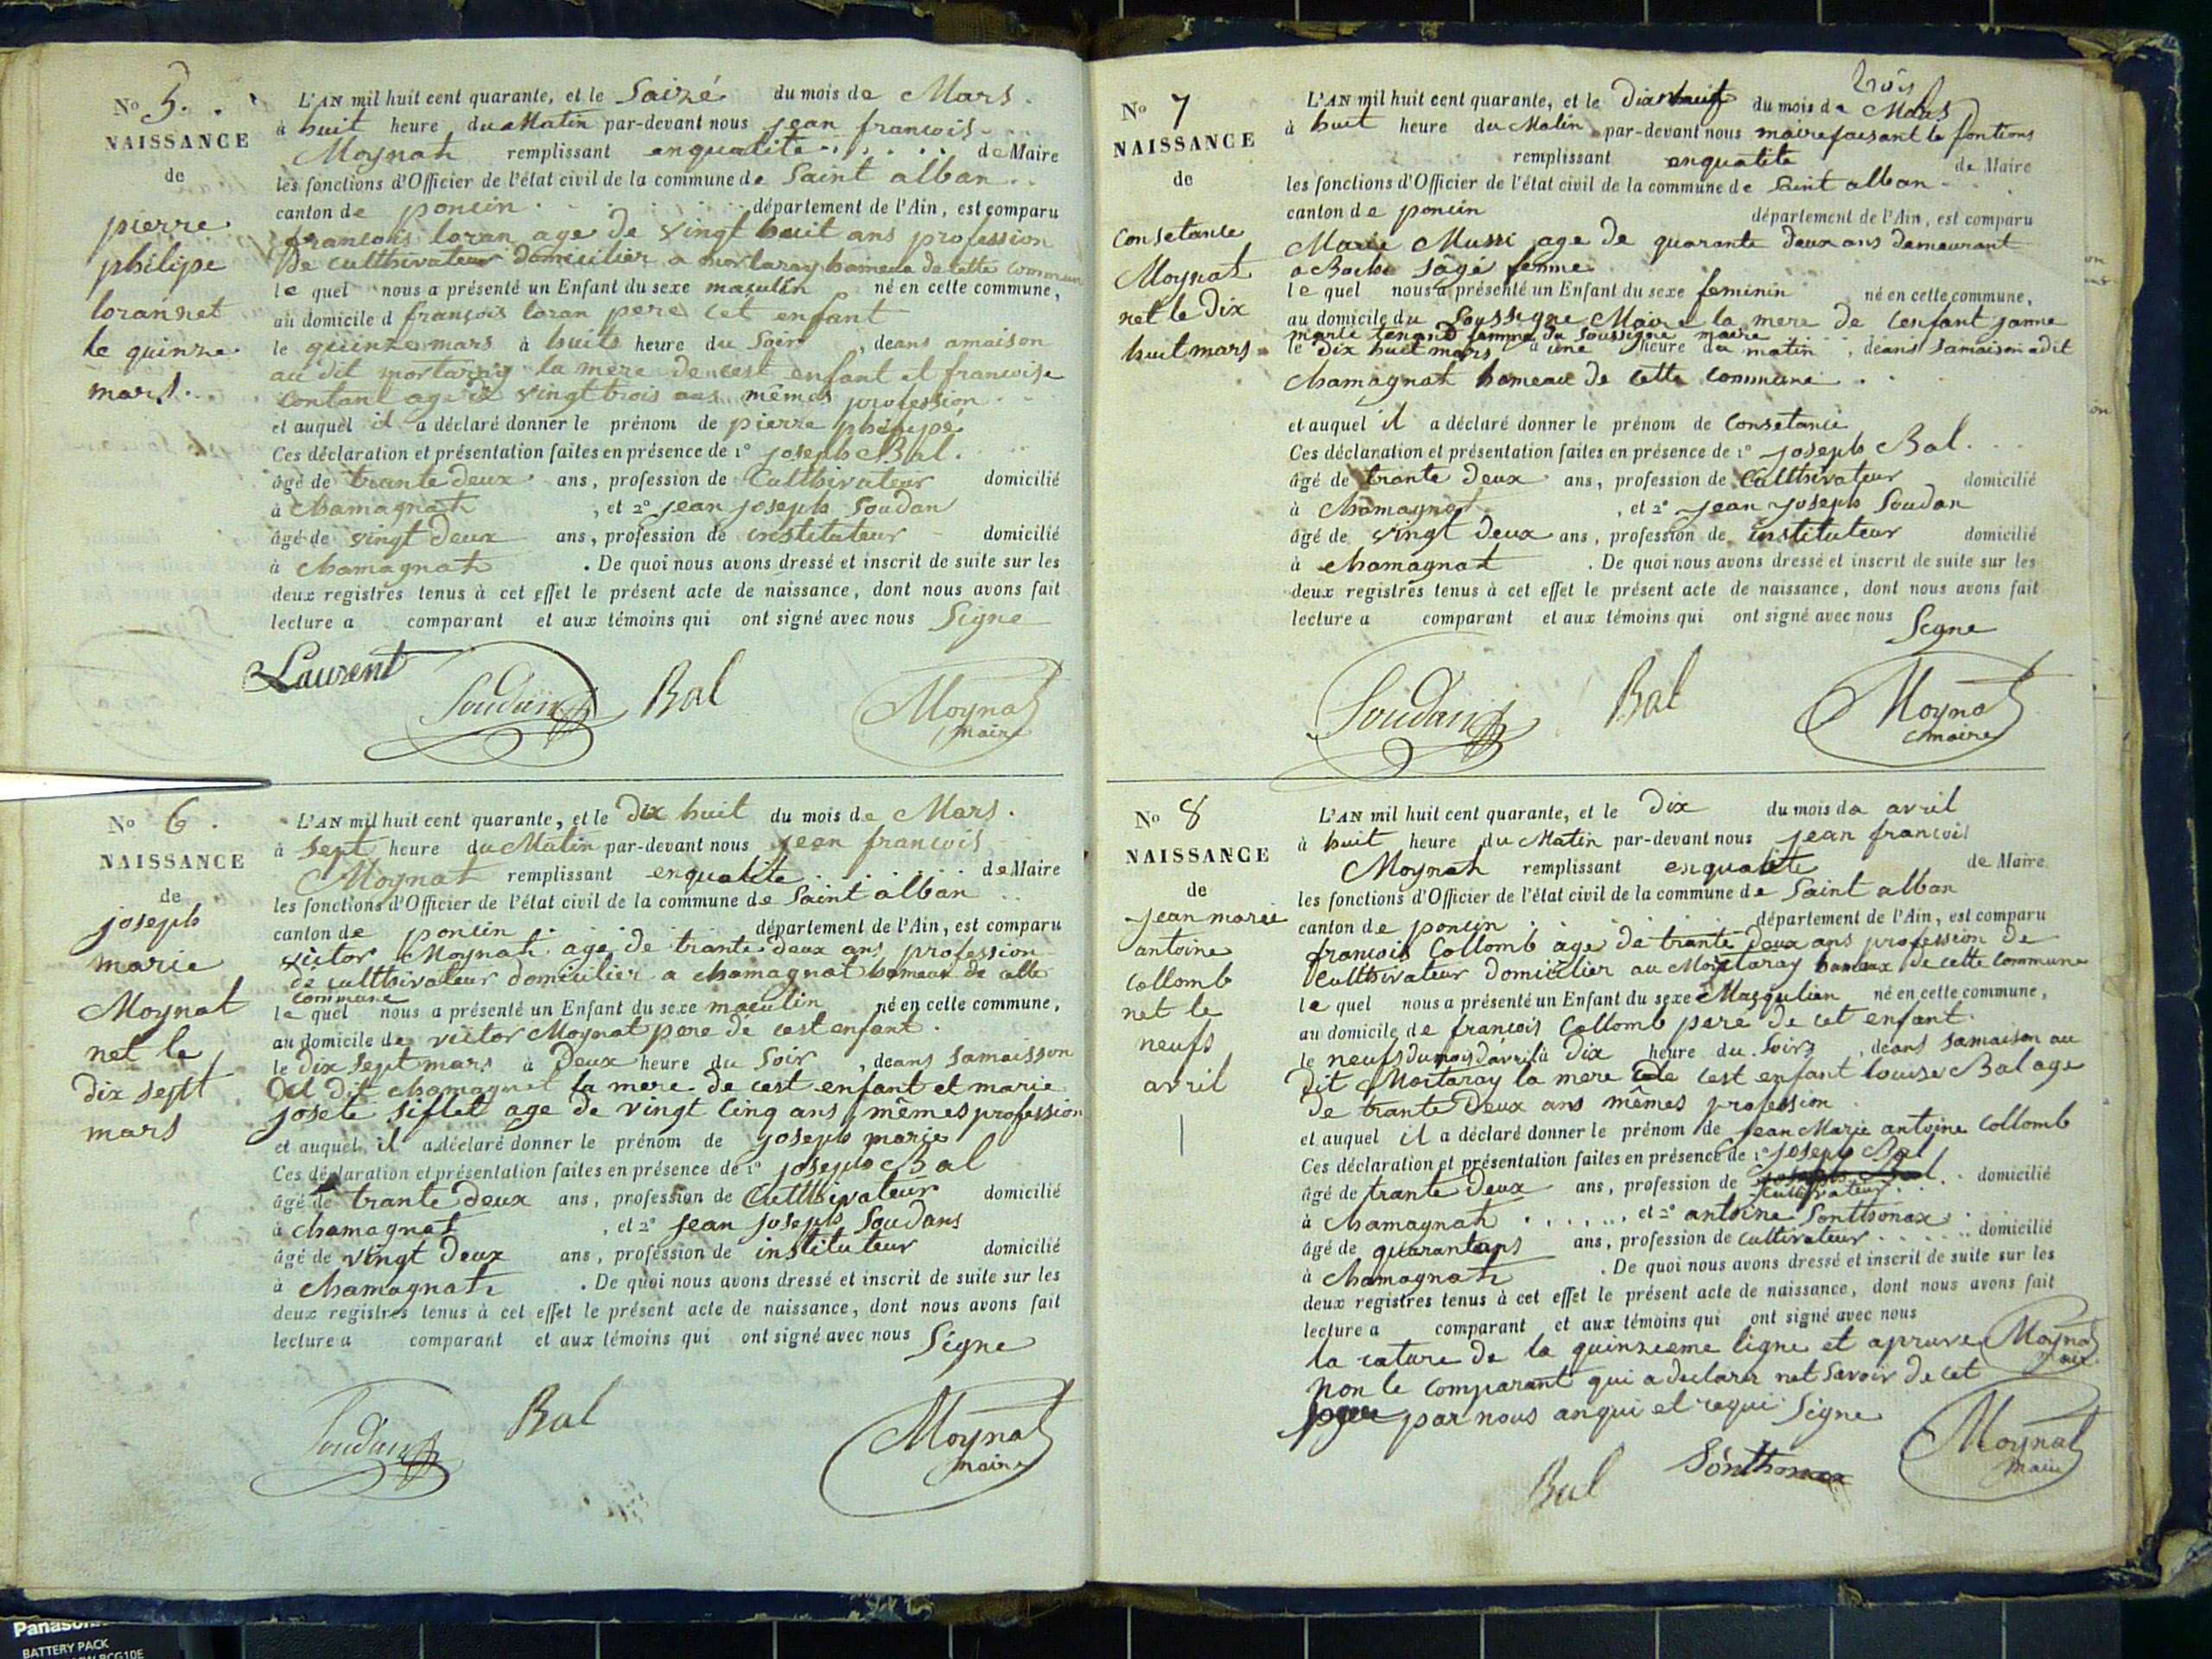 No 5.
NAISSANCE
de
pierre
philipe
loran net
le quinze
mars.
L'AN mil huit cent quarante, et le Saizé du mois de Mars.
à huit heure du Matin par-devant nous jean francois
Moynat remplissant enqualite de Maire
les fonctions d'Officier de l'état civil de la commune de Saint alban
canton de poncin département de l'Ain, est comparu
francois loran age de vingt huit ans profession
De cultthivateur domicilier a mortaray hameau de cette commune
le quel nous a présenté un Enfant du sexe masculin né en cette commune,
au domicile d françois loran pere cet enfant
le quinze mars à huits heure du Soir, deans amaison
au dit mortaray la mere de cest enfant et francoise
contant age de vingt trois ans mêmes profession
et auquel il a déclaré donner le prénom de pierre philipe
Ces déclaration et présentation faites en présence de 1° joseph Bal.
âgé de trante deux ans, profession de Cultthivateur domicilié
à chamagnat, et 2° jean joseph Soudan
âgé de vingt deux ans, profession de instituteur domicilié
à chamagnat. De quoi nous avons dressé et inscrit de suite sur les
deux registres tenus à cet effet le présent acte de naissance, dont nous avons fait
lecture a comparant et aux témoins qui ont signé avec nous Signe
Laurent Soudan Bal Moynat
maire
No 6.
NAISSANCE
de
joseph
marie
Moynat
net le
dix sept
mars
L'AN mil huit cent quarante, et le Dix huit du mois de Mars.
à Sept heure du Matin par-devant nous jean francois
Moynat remplissant enqualite de Maire
les fonctions d'Officier de l'état civil de la commune de Saint alban
canton de poncin département de l'Ain, est comparu
victor Moynat age de trante deux ans profession
de cultthivateur domicilier a chamagnat hameau de cette
commune
le quel nous a présenté un Enfant du sexe maculin né en cette commune,
au domicile de victor Moynat pere de cest enfant.
le dix Sept mars à Deux heure du Soir, deans Samaisson
au dit chamagnat la mere de cest enfant et marie
josete siflet age de vingt cinq ans mêmes profession
et auquel il a déclaré donner le prénom de joseph marie
Ces déclaration et présentation faites en présence de 1° joseph Bal
âgé de trante deux ans, profession de Cultthivateur domicilié
à chamagnat, et 2° jean joseph Soudans
âgé de vingt deux ans, profession de instituteur domicilié
à chamagnat. De quoi nous avons dressé et inscrit de suite sur les
deux registres tenus à cet effet le présent acte de naissance, dont nous avons fait
lecture a comparant et aux témoins qui ont signé avec nous Signe
Soudan Bal Moynat
maire
No 7
NAISSANCE
de
Consetance
Moynat
net le Dix
huit mars
trois
L'AN mil huit cent quarante, et le Dix huit du mois de Mars
à huit heure du Matin par-devant nous maire faisant le fontions
remplissant enqualite de Maire
les fonctions d'Officier de l'état civil de la commune de Saint alban
canton de poncin département de l'Ain, est comparu
Marie Mussi age de quarante deux ans demeurant
a Boche Sâgé femme
le quel nous a présenté un Enfant du sexe feminin né en cette commune,
au domicile du Soussigne Maire la mere de cenfant janne
marie tenand femme du Soussigne maire
le Dix huit mars à une heure du matin, deans Samaison adit
chamagnat hameau de cette commune.
et auquel il a déclaré donner le prénom de Consetance
Ces déclaration et présentation faites en présence de 1° joseph Bal.
âgé de trante Deux ans, profession de Cultthivateur domicilié
à chamagnat, et 2° jean joseph Soudan
âgé de vingt deux ans, profession de instituteur domicilié
à chamagnat. De quoi nous avons dressé et inscrit de suite sur les
deux registres tenus à cet effet le présent acte de naissance, dont nous avons fait
lecture a comparant et aux témoins qui ont signé avec nous Signe
Soudan Bal Moynat
maire
No 8
NAISSANCE
de
jean marie
antoine
collomb
net le
neufs
avril
L'AN mil huit cent quarante, et le Dix du mois da avril
à huit heure du Matin par-devant nous jean francois
Moynat remplissant enqualite de Maire
les fonctions d'Officier de l'état civil de la commune de Saint alban
canton de poncin département de l'Ain, est comparu
françois Collomb age de trante deux ans profession de
Cultthivateur Domicilier au Mortaray hameau de cette commune
le quel nous a présenté un Enfant du sexe Masqulien né en cette commune,
au domicile de françois Collomb pere de cet enfant.
le neufs du mois davril à Dix heure du Soirs, deans samaison au
Dit Mortaray la mere de cest enfant louise Bal age
De trante Deux ans mêmes profession
et auquel il a déclaré donner le prénom de jean Marie antoine Collomb
Ces déclaration et présentation faites en présence de 1° joseph Bal
âgé de trante Deux ans, profession de joseph Bal domicilié
Cultivateur
à chamagnat, et 2° antoine Sonthonax
âgé de quarantans ans, profession de cultivateur domicilié
à chamagnat. De quoi nous avons dressé et inscrit de suite sur les
deux registres tenus à cet effet le présent acte de naissance, dont nous avons fait
lecture a comparant et aux témoins qui ont signé avec nous
la rature de la quinzieme ligne et apruve Moynat
maire
non le comparant qui a declarer net Savoir de cet
par nous anqui el requi Signe
Bal Sonthonax Moynat
maire
Panasonic
BATTERY PACK
BCG10E